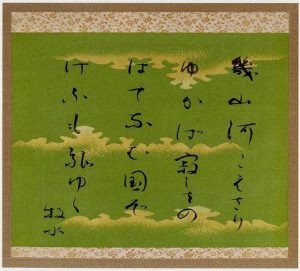 幾山河こえさり
ゆかば寂しさの
はてなむ國ぞ
けふも旅ゆく
牧水